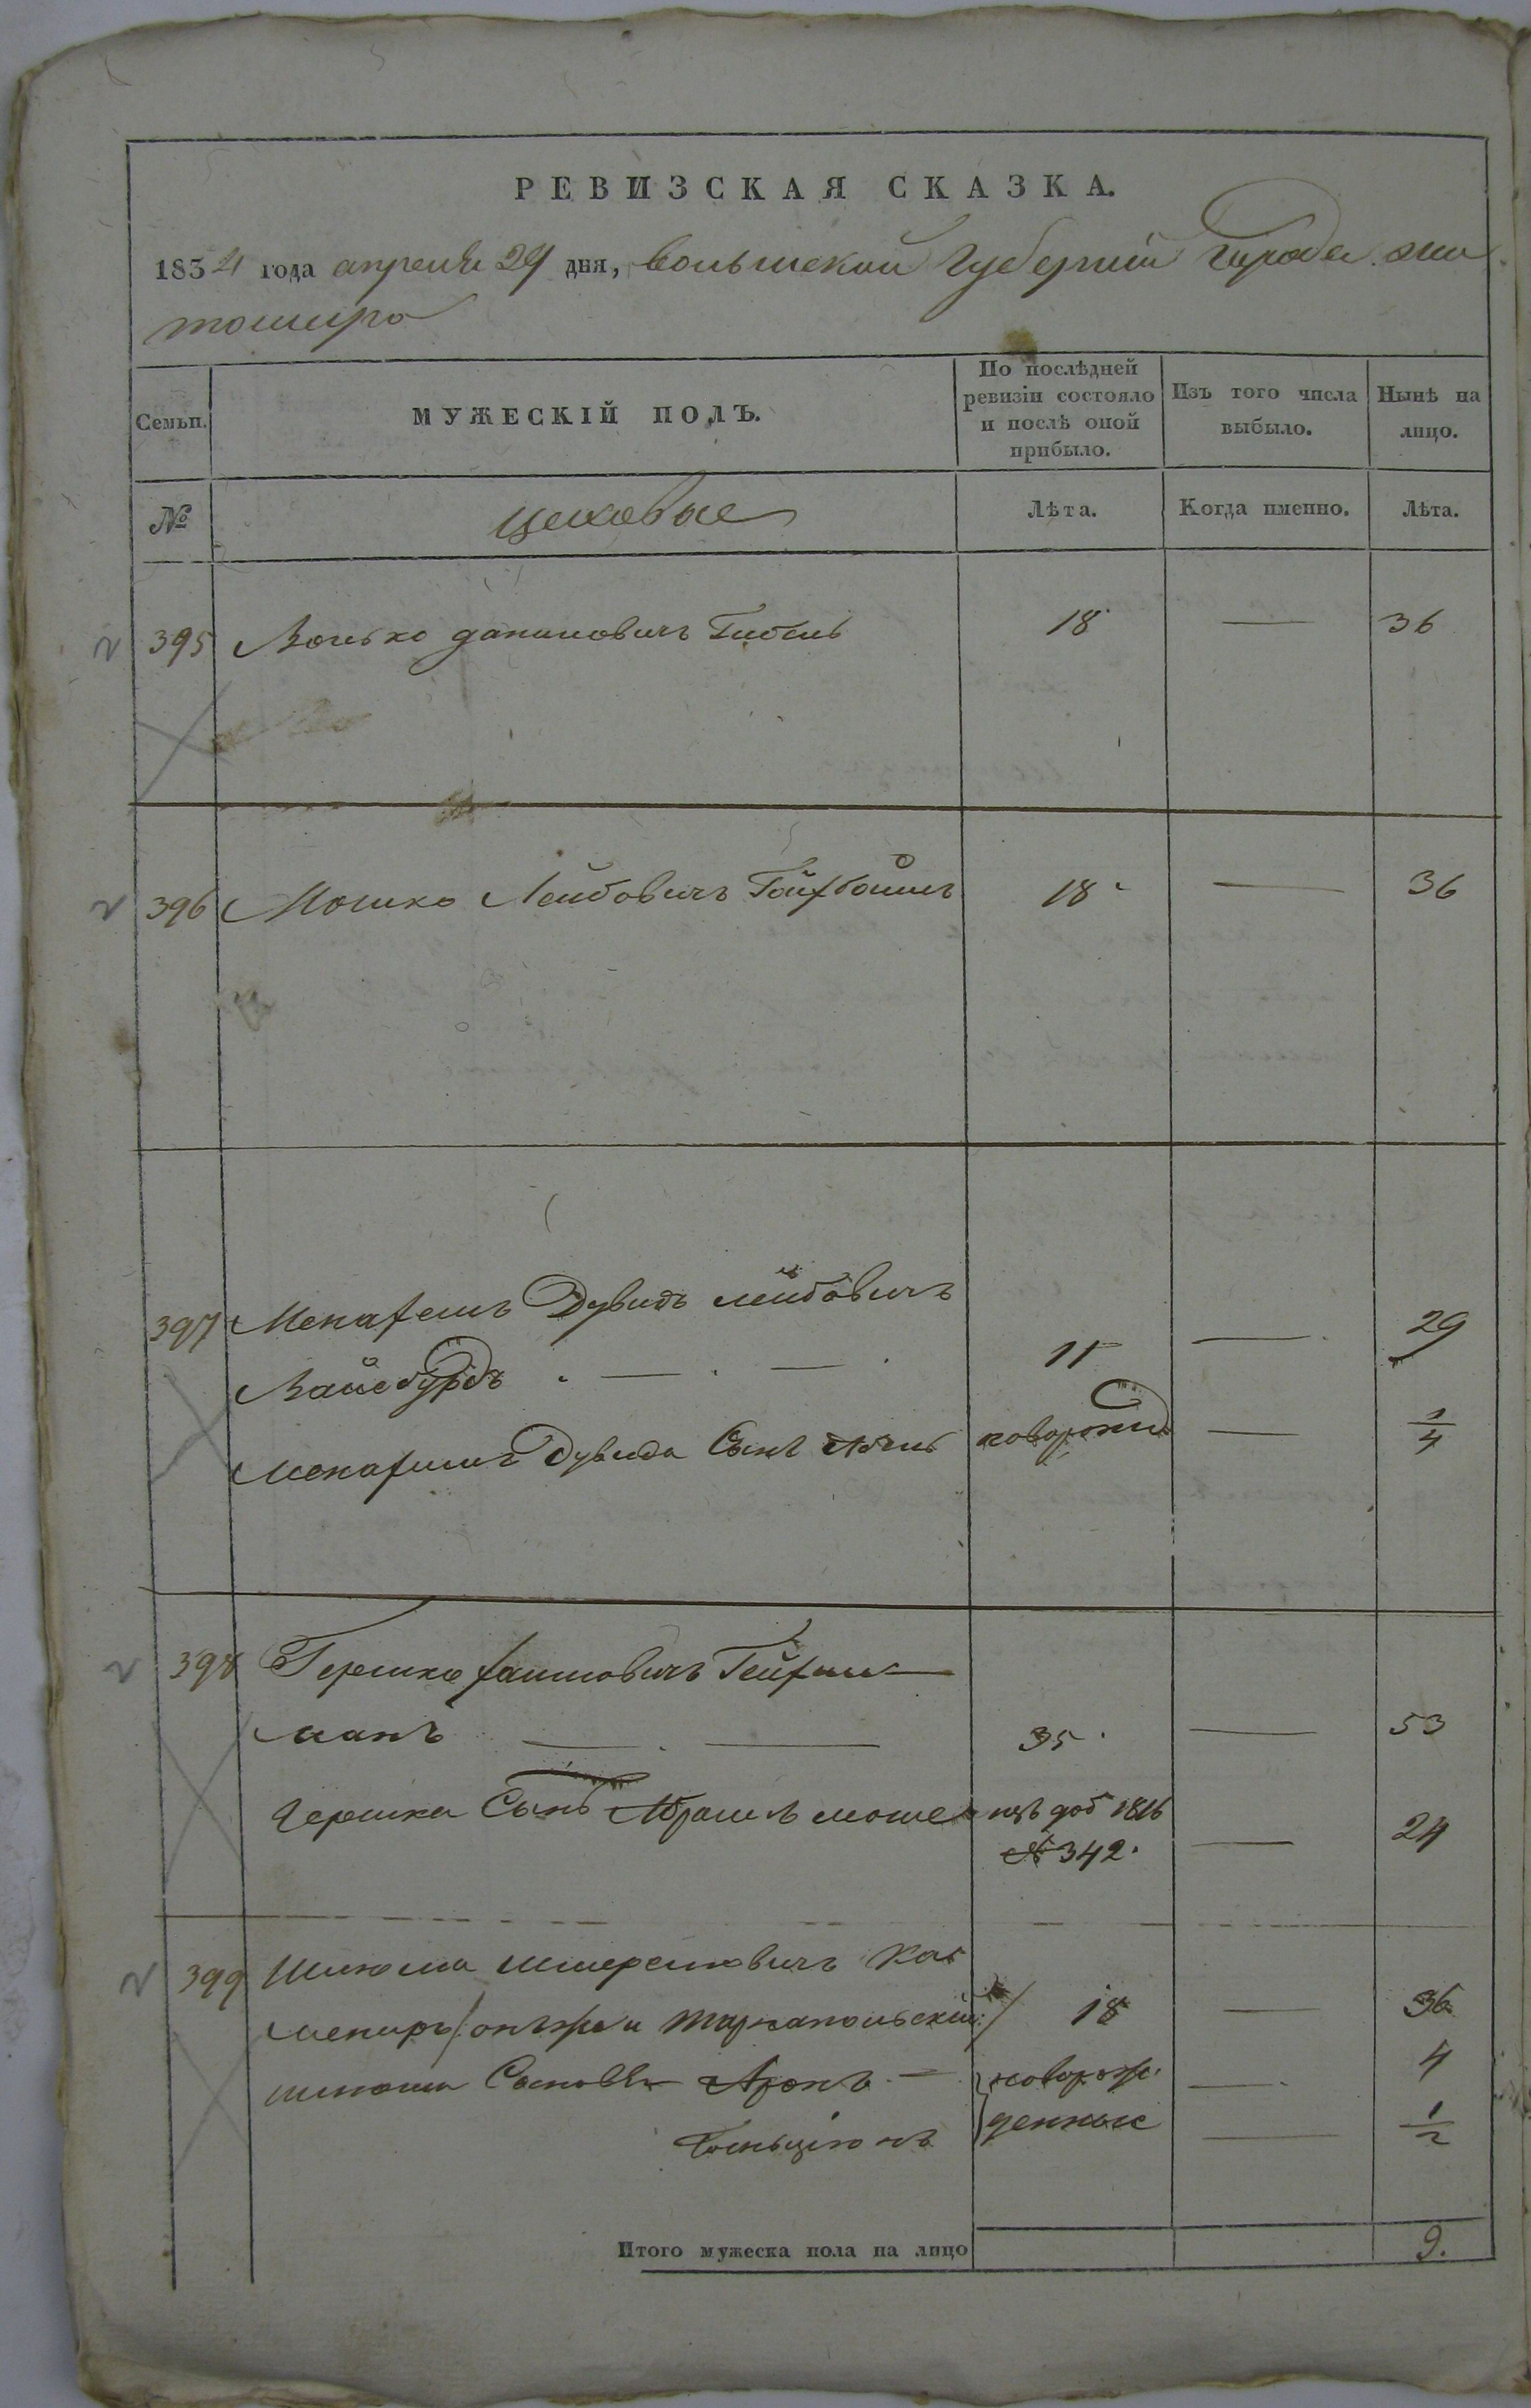 РЕВИЗСКАЯ СКАЗКА.
1834 года апреля 29 дня, волынской Губернии Города жи
томира
Семьи.
МУЖЕСКІЙ ПОЛЪ.
По послѣдней ревизіи состояло и послѣ оной прибыло.
Изъ того числа выбыло.
Нынѣ на лицо.
№
цеховые
Лѣта.
Когда именно.
Лѣта.
395 Волько даниловичъ 18 — 36
396 Мошко Лейбовичъ 18 — 36
397 Дувидъ лейбовичъ
11 — 29
Дувида Сынъ новорожд — 1/4
398 Гершко
манъ — — 35 — 53
Гершка Сынъ Абрамъ моше изъ доб 1816 — 24
№ 342.
399 Шлиома Шмерелиовичъ Кас
онъ же и Тарнапольскій 18 — 36
шлиомы Сыновья Аронъ — новорож — 4
Бенціонъ денные — 1/2
Итого мужеска пола на лицо 9.